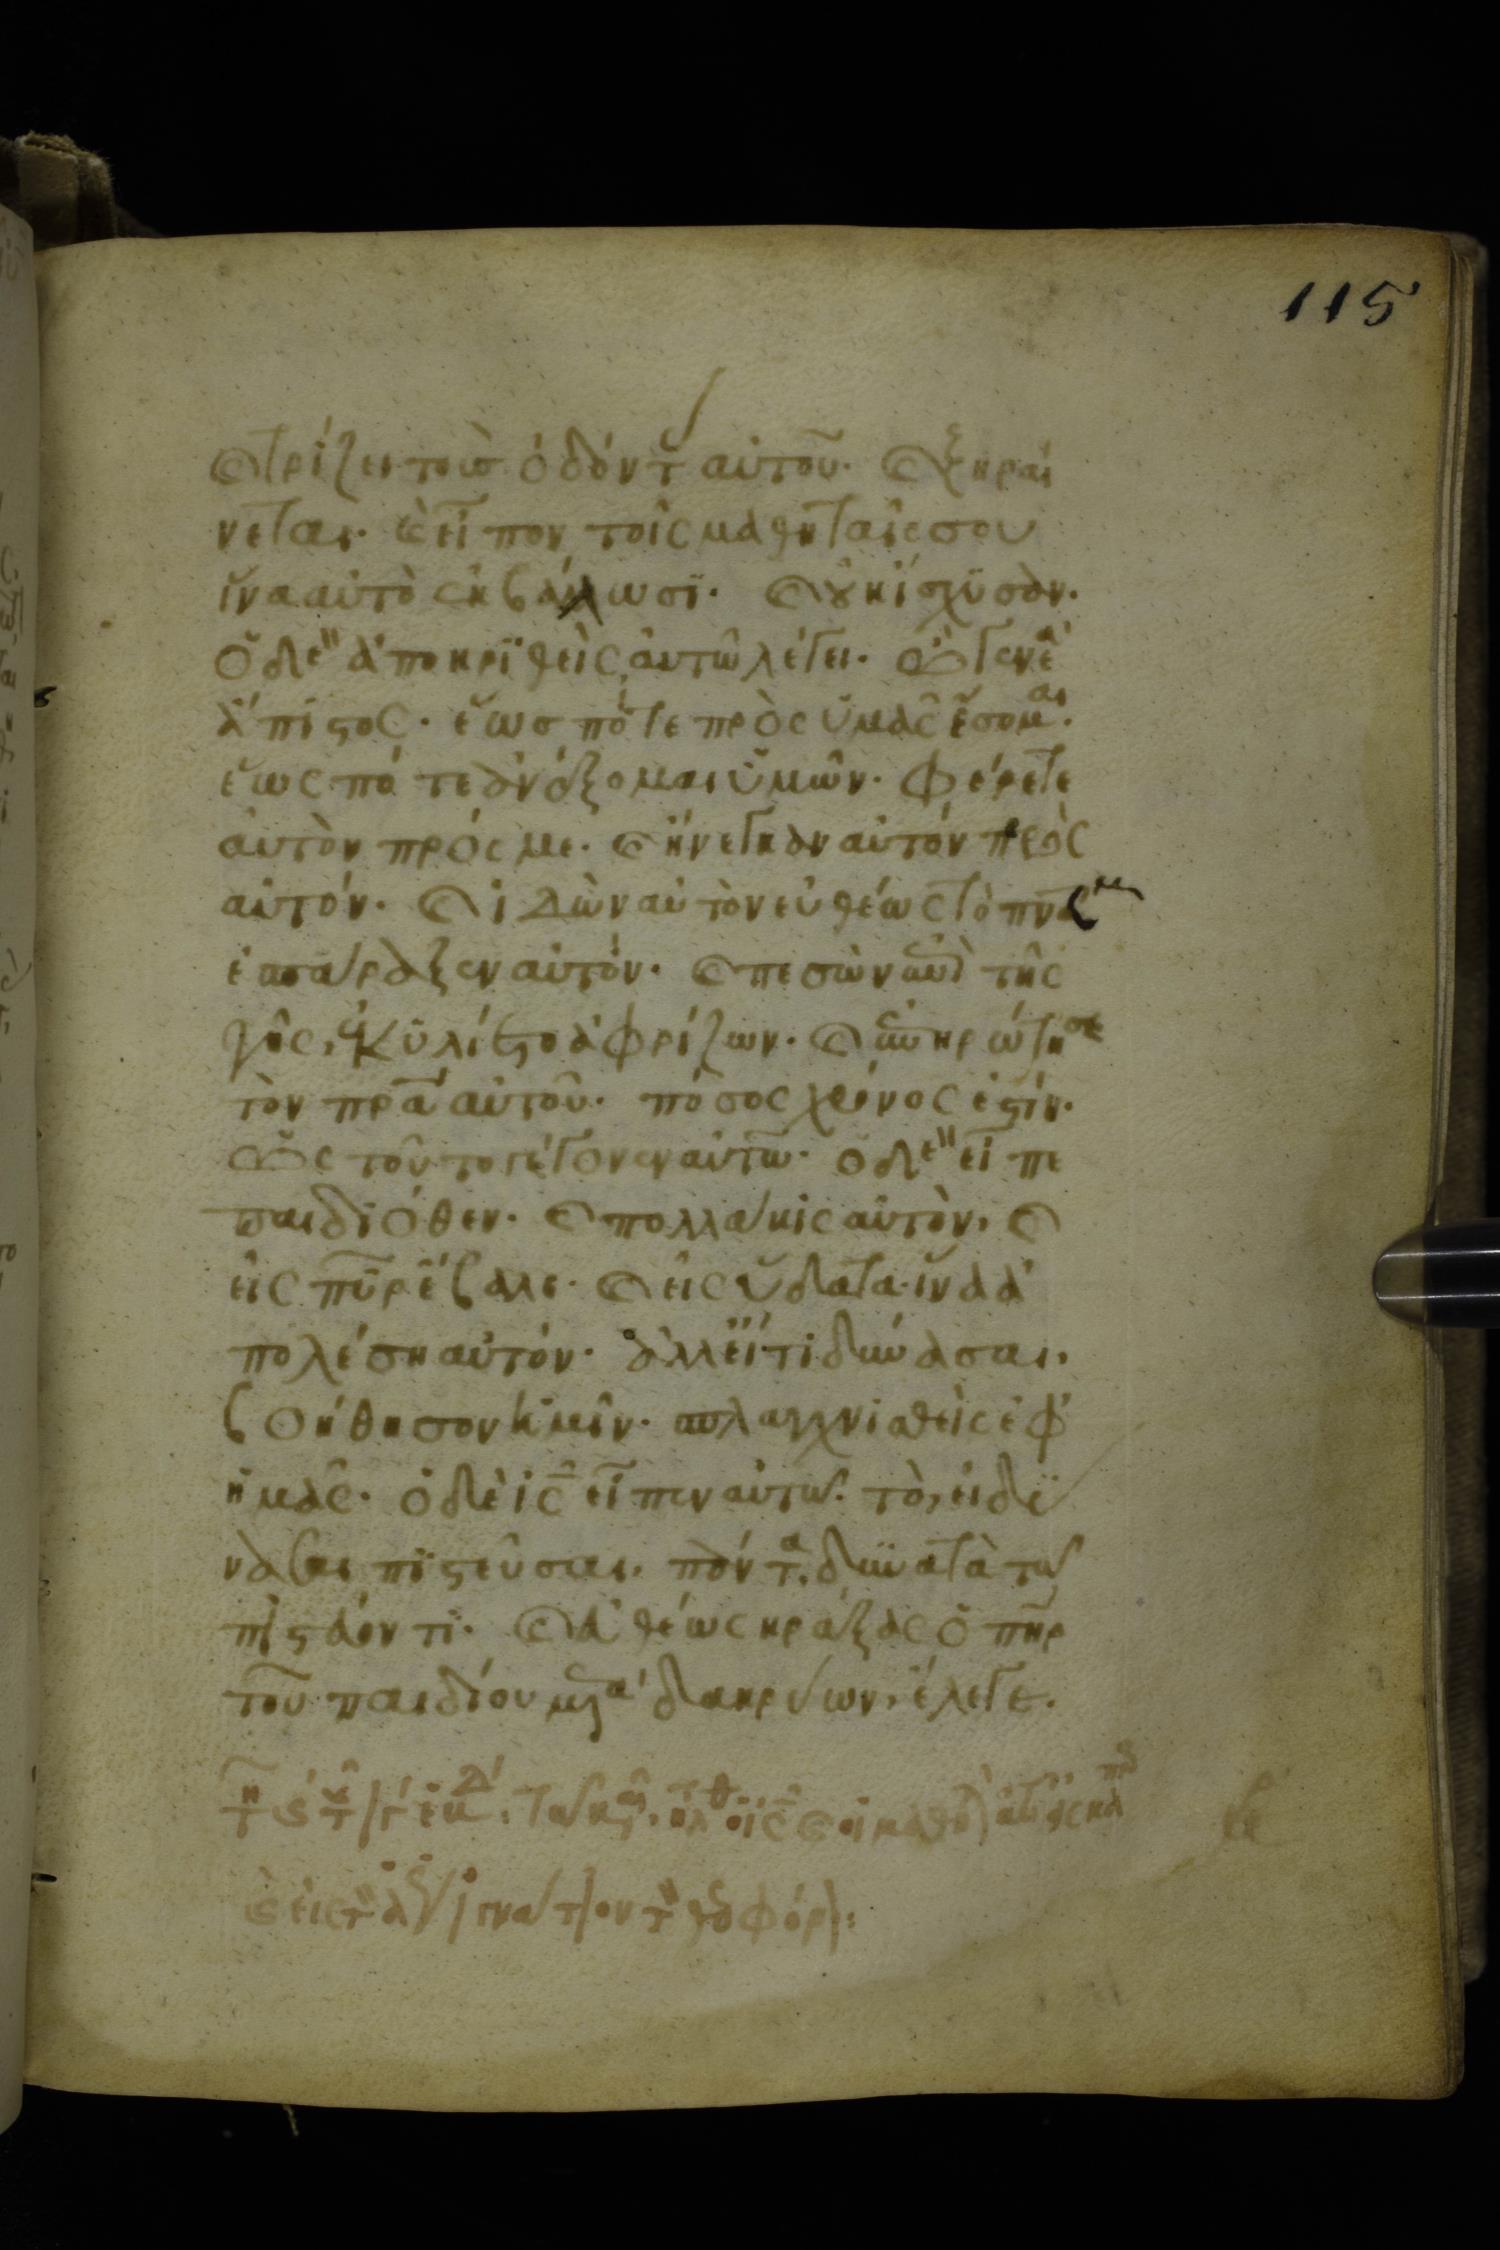 115
Ϗ τρίζει τοὺσ ὀδόντ αὐτοῦ· Ϗ ξηραί
νεται· Ϗ εἶπον τοῖς μαθηταῖς σου
ἵνα αὐτὸ ἐκβάλωσϊ· Ϗ οὐκ ἴσχϋσαν·
Ὁ δὲ ἀποκρϊθεὶς αὐτῶ λέγει· Ὦ γενεὰ
ἄπιστος· ἕωσ πότε πρὸς ὑμᾶς ἔσομαι·
ἕως πότε ἀνέξομαι ὑμῶν· Φέρετε
αὐτὸν πρός με· Ϗ ἤνεγκαν αὐτὸν πρὸς
αὐτόν· Ϗ ἰδὼν αὐτὸν εὐθέως τὸ πνα
ἐσπάραξεν αὐτόν· Ϗ πεσὼν ἐπὶ τῆς
γῆς, ἐκϋλίετο ἀφρίζων· Ϗ ἐπηρώτησε
τὸν πρα αὐτοῦ· πόσος χρόνος ἐστίν·
Ὡς τοῦτο γέγονεν αὐτῶ· ὁ δὲ εἶπε
παιδϊόθεν· Ϗ πολλάκις αὐτὸν, Ϗ
εἰς πῦρ ἔβαλε· Ϗ εἰς ὕδατα· ἵνα ἀ
πολέση αὐτόν· ἀλλεἴ τι δύνασαι,
βοήθησον ἡμῖν· σπλαγχνισθεὶς ἐφ
ἡμᾶς· ὁ δὲ ις εἶπεν αὐτῶ· τὸ, εἰ δϋ
νασαι πϊστεῦσαι, πάντα δυνατὰ τῶ
πϊστεύοντϊ· Ϗ εὐθέως κράξας ὁ πηρ
τοῦ παιδίου μετὰ δακρύων, ἔλεγε·